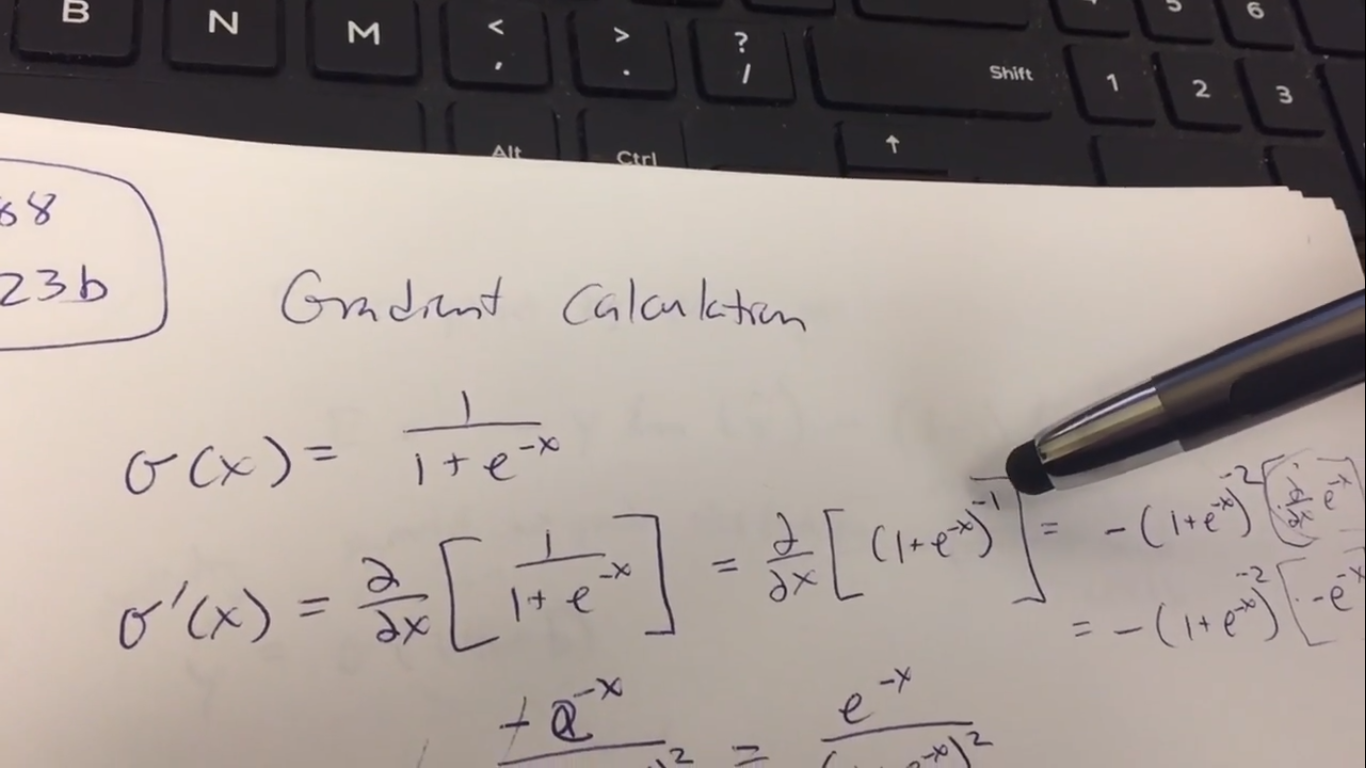 B N M < , > . ? / Shift 1 2 3 5 6
Alt Ctrl ↑
68
23b
Gradient Calculation
σ(x) = 1 / (1 + e^-x)
σ'(x) = ∂/∂x [1 / (1 + e^-x)] = ∂/∂x [(1+e^-x)^-1] = -(1+e^-x)^-2 [∂/∂x e^-x
= -(1+e^-x)^-2 [-e^-x
+ e^-x / ^2 = e^-x / (e^-x)^2